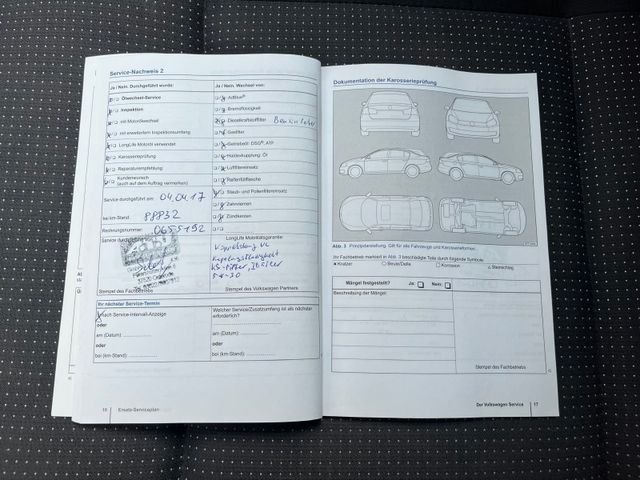 Service-Nachweis 2
Ja / Nein. Durchgeführt wurde:
Ölwechsel-Service
Inspektion
mit Motorölwechsel
mit erweitertem Inspektionsumfang
LongLife Motoröl verwendet
Karosserieprüfung
Reparaturempfehlung
Kundenwunsch
(auch auf dem Auftrag vermerken)
Service durchgeführt am: 04.04.17
bei km-Stand: 88832
Rechnungsnummer: 0655192
Service durchgeführt von:
Stempel des Fachbetriebs
Ja / Nein. Wechsel von:
AdBlue®
Bremsflüssigkeit
Dieselkraftstofffilter
Gasfilter
Getriebeöl: DSG®, ATF
Haldexkupplung: Öl
Luftfiltereinsatz
Reifenfüllflasche
Staub- und Pollenfiltereinsatz
Zahnriemen
Zündkerzen
LongLife Mobilitätsgarantie:
5W-30
Stempel des Volkswagen Partners
Ihr nächster Service-Termin
nach Service-Intervall-Anzeige
oder
am (Datum):
oder
bei (km-Stand):
Welcher Service/Zusatzumfang ist als nächster
erforderlich?
am (Datum):
oder
bei (km-Stand):
16 Ersatz-Serviceplan
Dokumentation der Karosserieprüfung
Abb. 3 Prinzipdarstellung: Gilt für alle Fahrzeuge und Karosserieformen.
Ihr Fachbetrieb markiert in Abb. 3 beschädigte Teile durch folgende Symbole:
Kratzer Beule/Delle Korrosion Steinschlag
Mängel festgestellt? Ja: Nein:
Beschreibung der Mängel:
Stempel des Fachbetriebs
Der Volkswagen Service 17